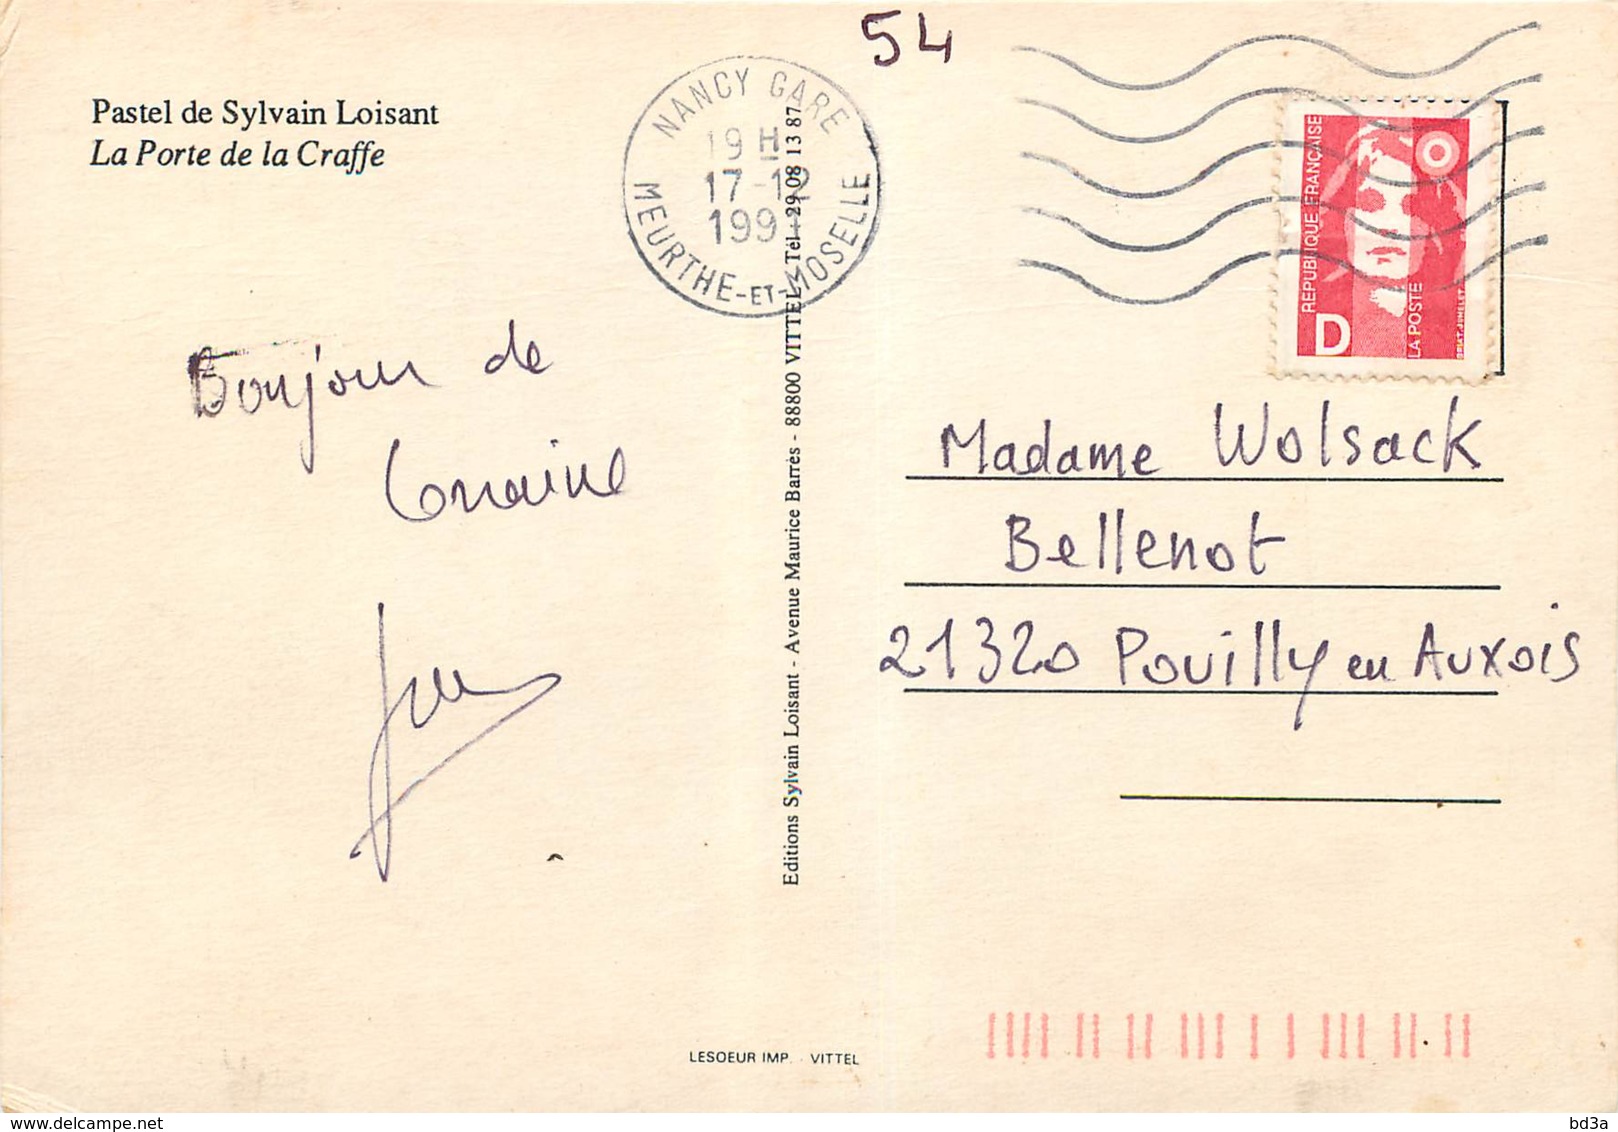 54
Pastel de Sylvain Loisant
La Porte de la Craffe
NANCY GARE
19 H
17-12
1991
MEURTHE-ET-MOSELLE
RÉPUBLIQUE FRANÇAISE
LA POSTE
D
O
BRIAT-JUMELET
Bonjour de
Lorraine
Editions Sylvain Loisant - Avenue Maurice Barrès - 88800 VITTEL - Tél 29 08 13 87
Madame Wolsack
Bellenot
21320 Pouilly en Auxois
LESOEUR IMP. - VITTEL
bd3a